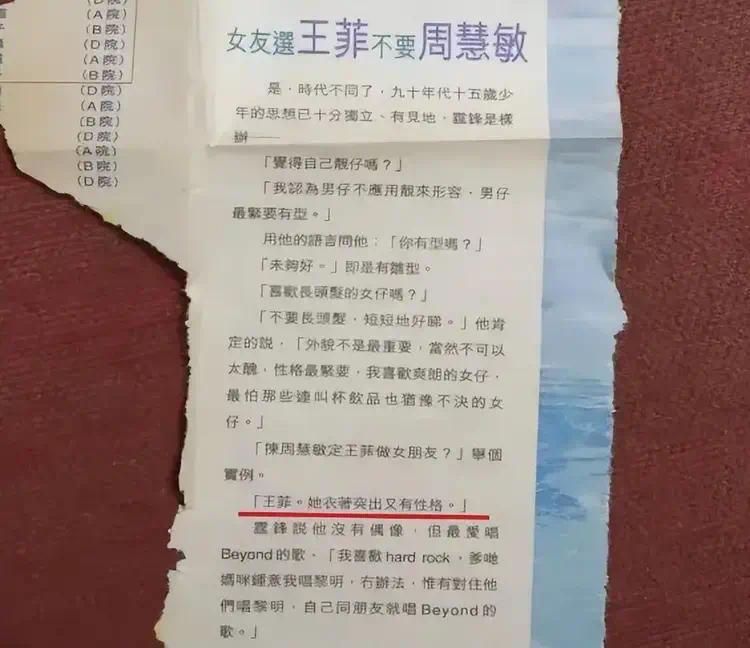 (D院)
(A院)
(B院)
(D院)
(A院)
(B院)
(D院)
(A院)
(B院)
(D院)
(A院)
(B院)
(D院)
女友選王菲不要周慧敏
是,時代不同了,九十年代十五歲少
年的思想已十分獨立、有見地,霆鋒是樣
辦——
「覺得自己靚仔嗎?」
「我認為男仔不應用靚來形容,男仔
最緊要有型。」
用他的語言問他:「你有型嗎?」
「未夠好。」即是有雛型。
「喜歡長頭髮的女仔嗎?」
「不要長頭髮,短短地好睇。」他肯
定的説,「外貌不是最重要,當然不可以
太醜,性格最緊要,我喜歡爽朗的女仔,
最怕那些連叫杯飲品也猶豫不決的女
仔。」
「揀周慧敏定王菲做女朋友?」舉個
實例。
「王菲。她衣著突出又有性格。」
霆鋒説他沒有偶像,但最愛唱
Beyond的歌、「我喜歡hard rock,爹哋
媽咪鍾意我唱黎明,冇辦法,惟有對住他
們唱黎明,自己同朋友就唱Beyond的
歌。」